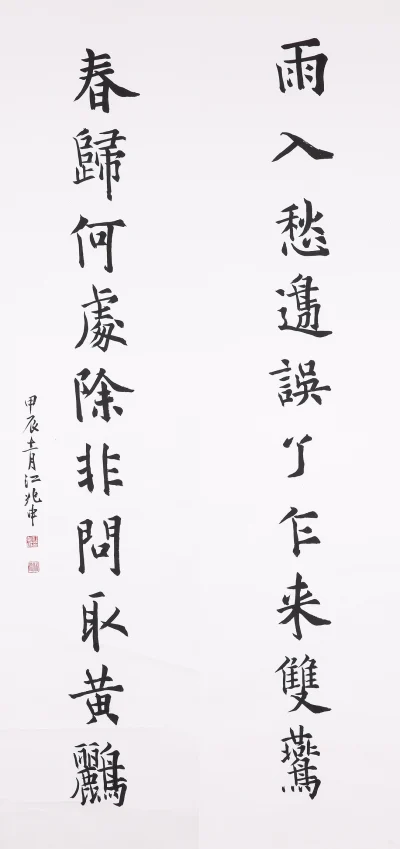 雨入愁邊誤了乍来雙鷰
春歸何處除非問取黄鸝
甲辰十一月江兆申